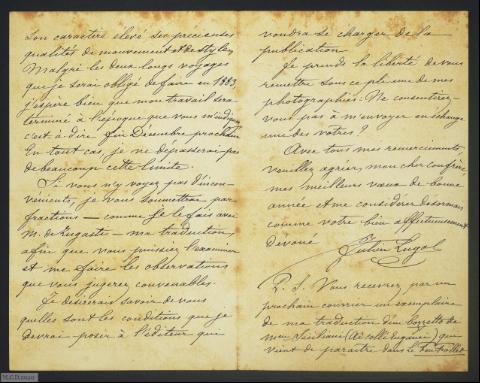 son caractère élevé ses précieuses
qualités de mouvement et de style,
Malgré les deux longs voyages
que je serai obligé de faire en 1883,
j'espère bien que mon travail sera
terminé à l'époque que vous m'indiquez
c'est-à-dire fin Décembre prochain
En tout cas je ne dépasserai pas
de beaucoup cette limite.
Si vous n'y voyez pas d'incon-
vénients, je vous soumettrai par
fractions — comme je le fais avec
M. — ma traduction,
afin que vous puissiez l'examiner
et me faire les observations
que vous jugerez convenables.
Je désirerais savoir de vous
quelles sont les conditions que je
devrai poser à l'éditeur qui
voudra se charger de la
publication.
Je prends la liberté de vous
remettre sous ce pli une de mes
photographies. Ne consentirez-
vous pas à m'envoyer en échange
une des vôtres ?
Avec tous mes remerciements,
veuillez agréer, mon cher confrère,
mes meilleurs vœux de bonne
année et me considérer désormais
comme votre bien affectueusement
dévoué
Julien Lugol
P. S. Vous recevrez par un
prochain courrier un exemplaire
de ma traduction d'un
que
vient de paraître dans le
M.C.D.